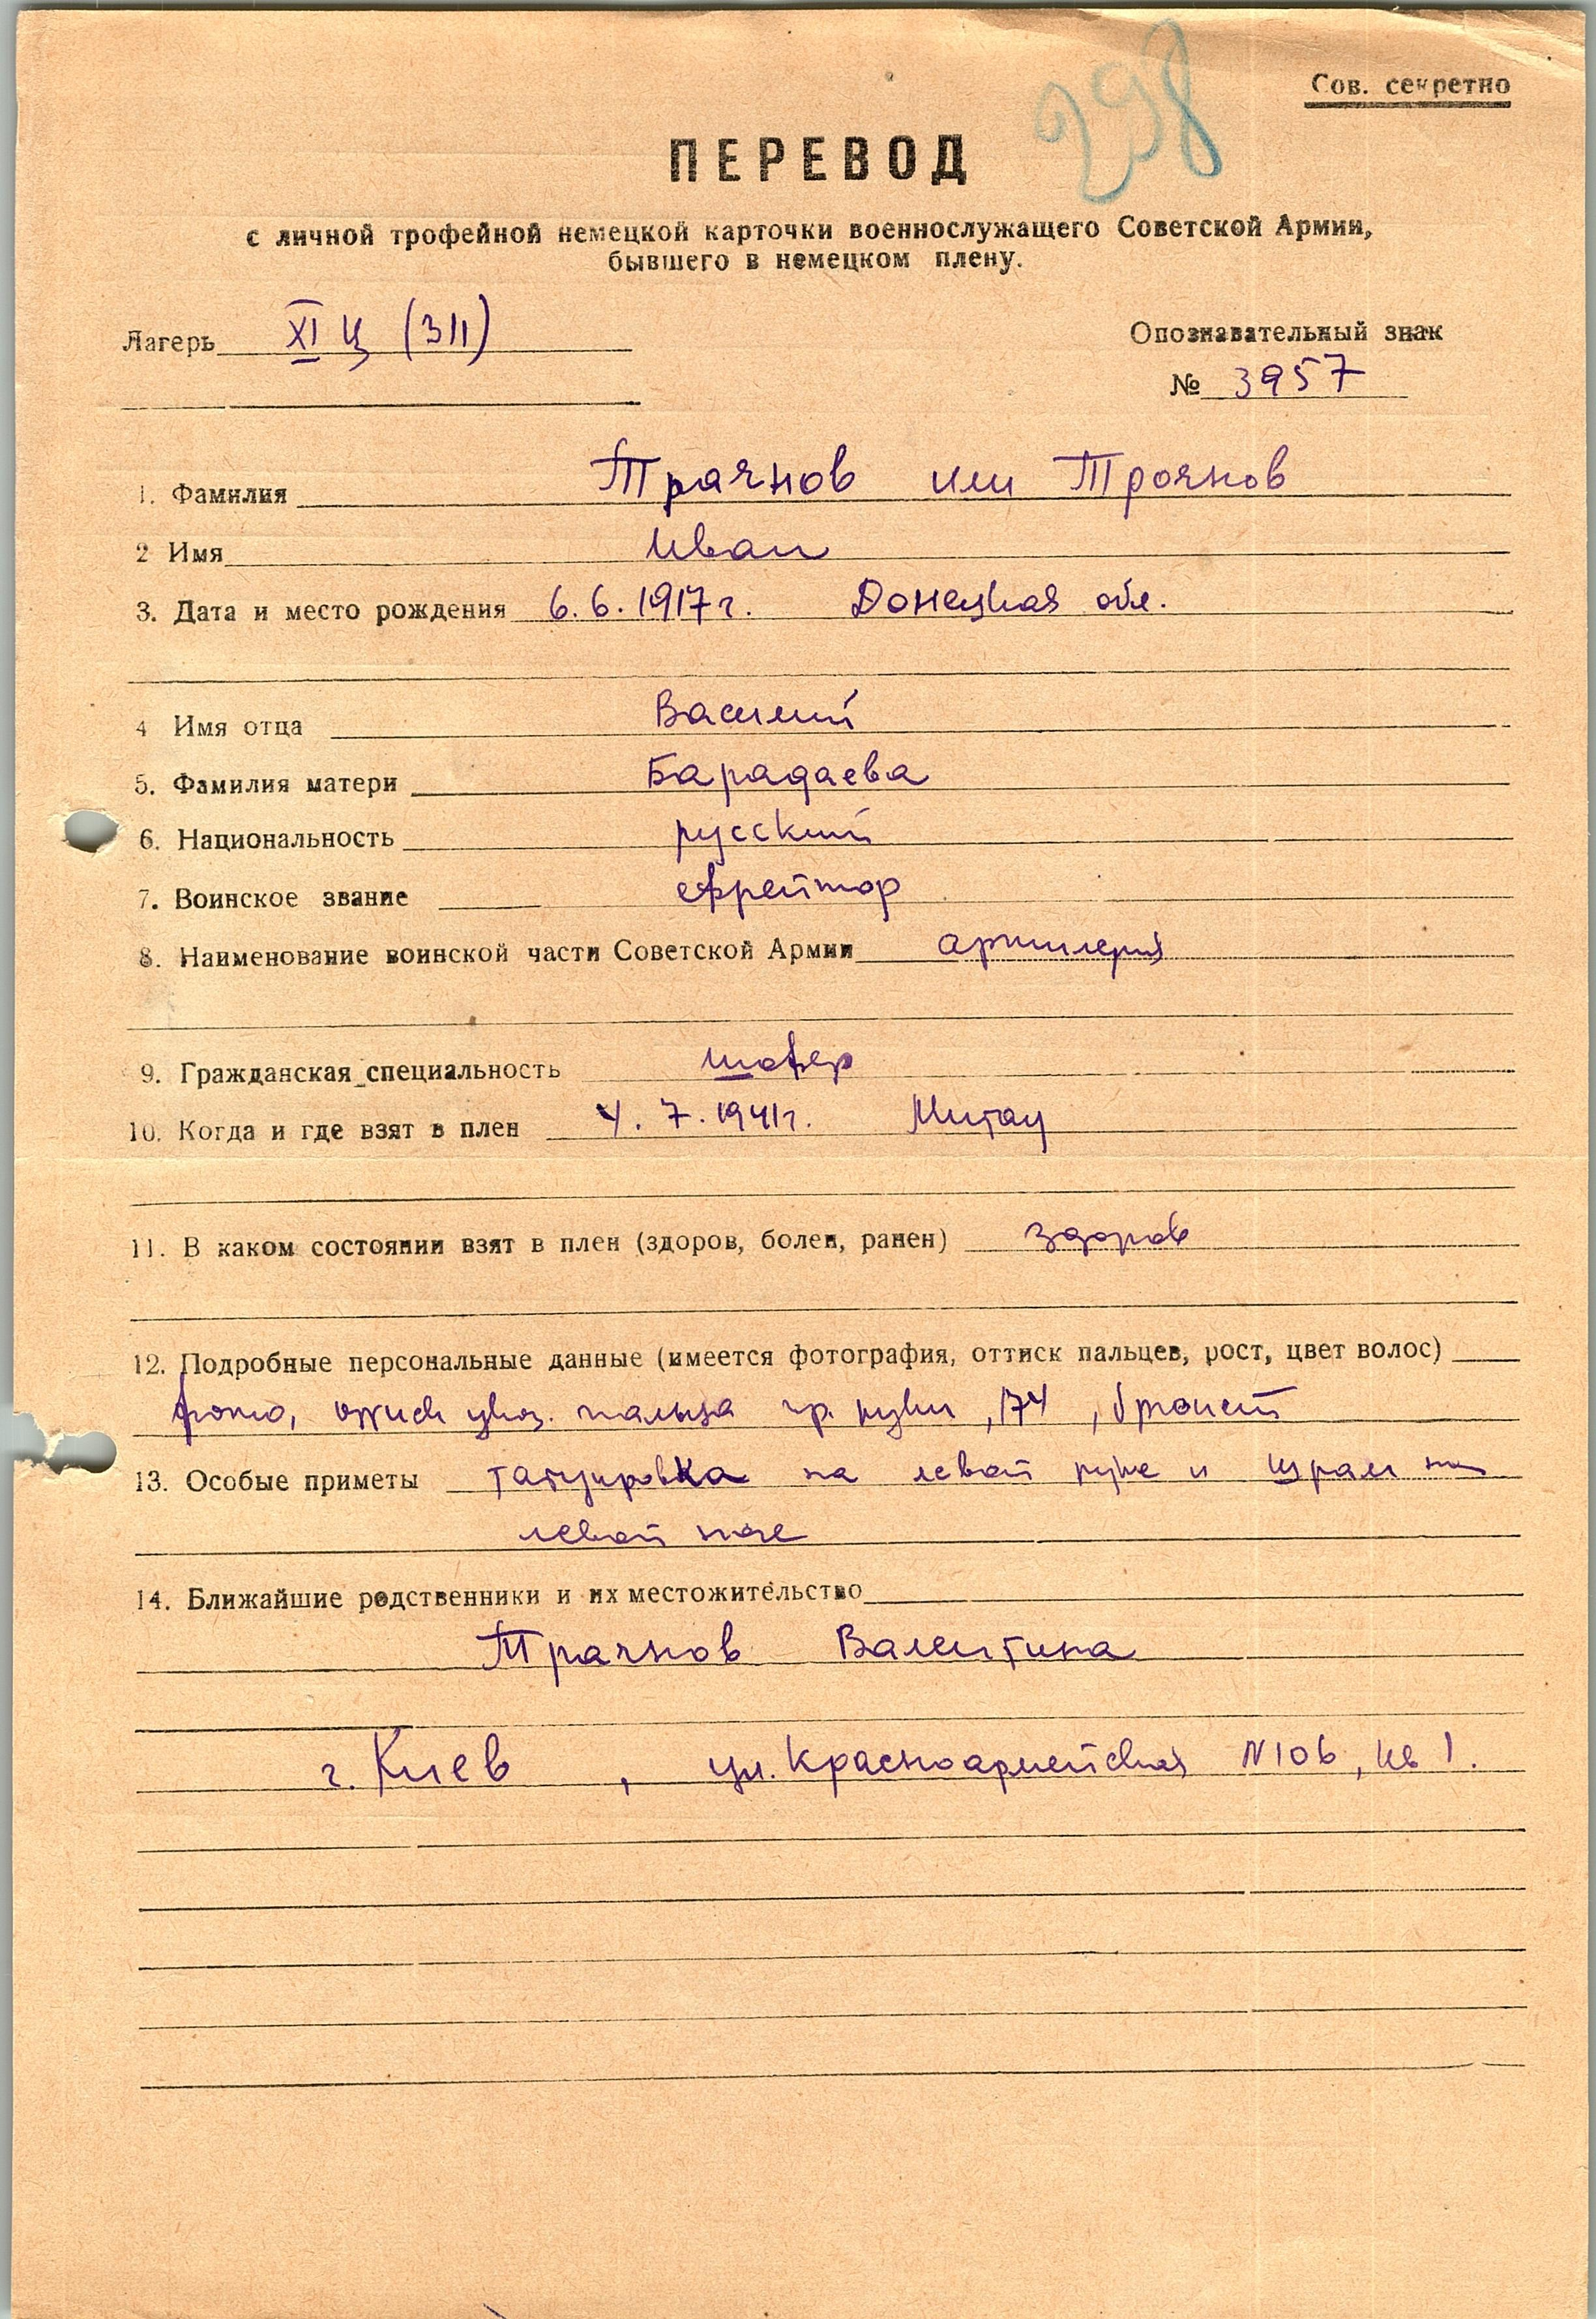 298
Сов. секретно
ПЕРЕВОД
с личной трофейной немецкой карточки военнослужащего Советской Армии,
бывшего в немецком плену.
Лагерь XI Ц (311)
Опознавательный знак
№ 3957
1. Фамилия Трачнов или Троянов
2 Имя Иван
3. Дата и место рождения 6.6.1917г. Донецкая обл.
4 Имя отца Василий
5. Фамилия матери Барадаева
6. Национальность русский
7. Воинское звание ефрейтор
8. Наименование воинской части Советской Армии артилерия
9. Гражданская специальность шофер
10. Когда и где взят в плен 4.7.1941г. Митау
11. В каком состоянии взят в плен (здоров, болен, ранен) здоров
12. Подробные персональные данные (имеется фотография, оттиск пальцев, рост, цвет волос)
фото, оттиск указ. пальца пр. руки, 174, брюнет
13. Особые приметы татуировка на левой руке и шрам на
левой ноге
14. Ближайшие родственники и их местожительство
Трачнов Валентина
г. Киев, ул. Красноармейская N 106, кв 1.